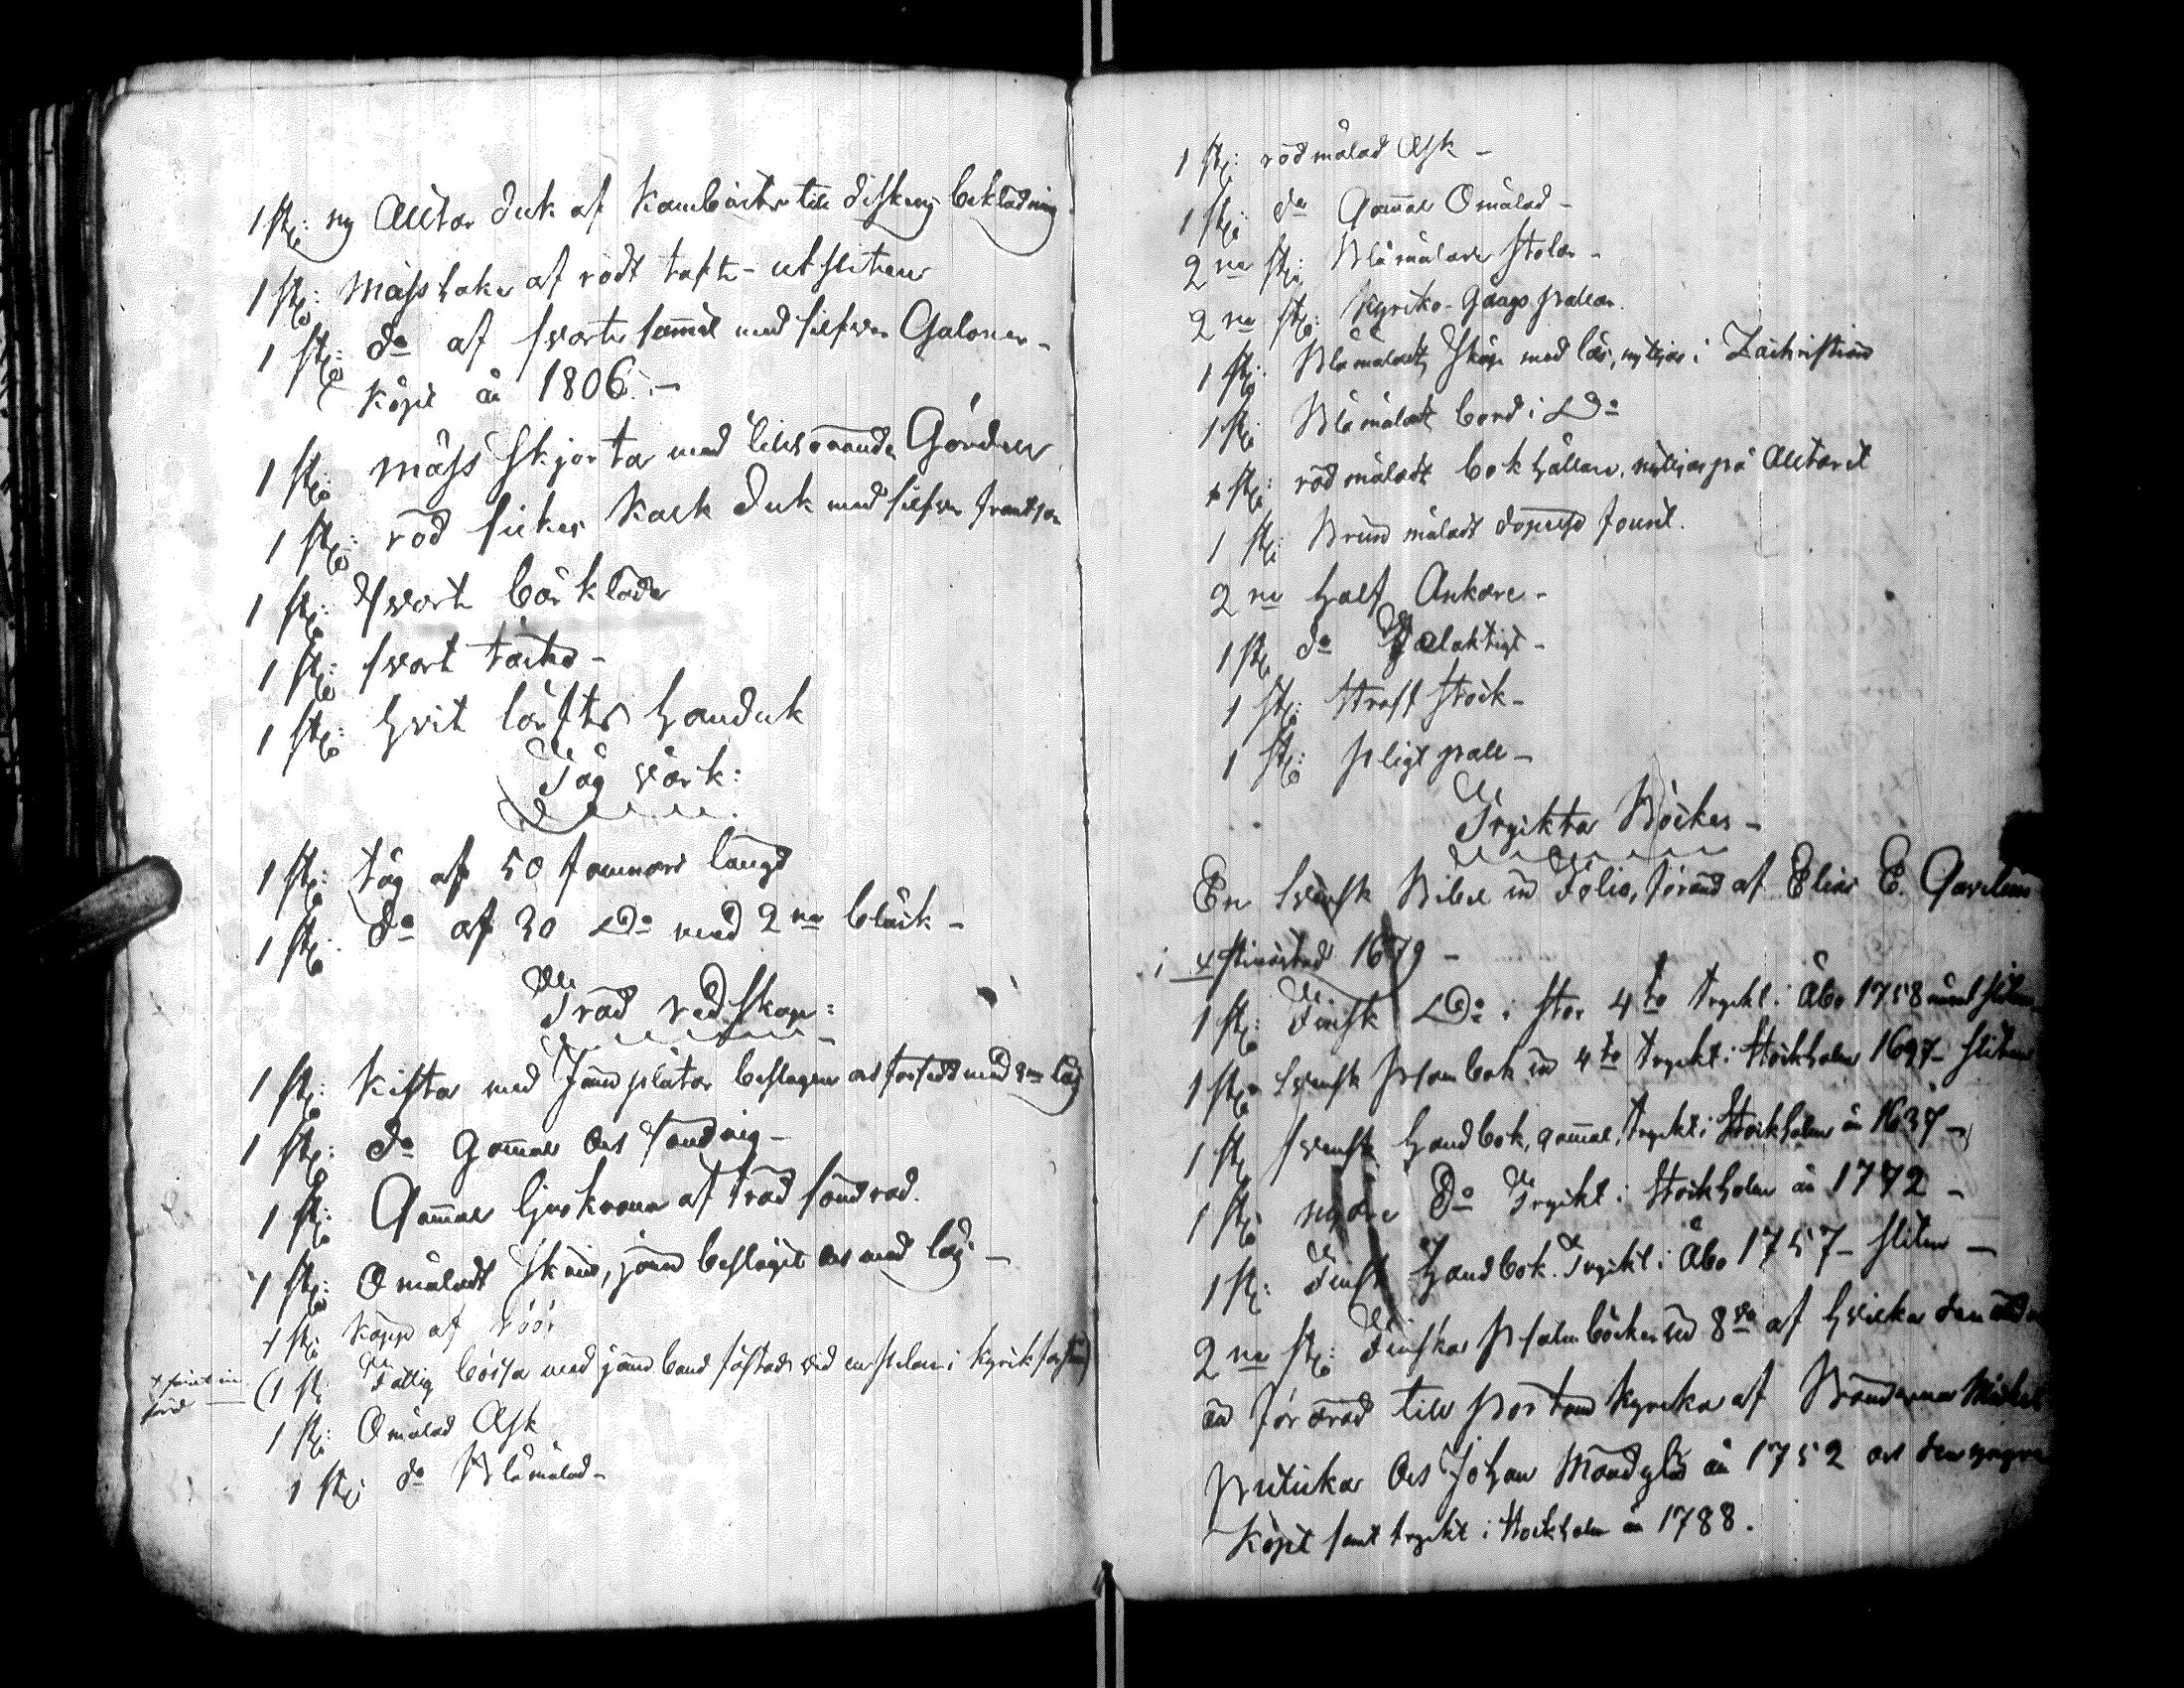 1 st: ny Alltar duk af Kambricks till diskens beklädning
1 st: Mässhake af rödt taft - utsliten
1 st: do af svart sammet med silfver Galoner -
köpt år 1806. -
1 st: mäss skjorta med tillhörande Gördell
1 st: röd sickes Kalk duk med silfver frantsar
1 st: Svart bårkläde
1 st: svart täcke -
1 st: hvit lärfts handuk
Tåg värk:
1 st: tåg af 50 famnars längd
1 st: do af 30 Do med 2ne bläck -
Träd redskap:
1 st: Kista med Järn plåtar beslagen och försedd med 2ne lås
1 st: do Gammal och söndrig -
1 st: Gammal ljuskrona af träd söndrad.
1 st: Omåladt Skrin, järn beslaget och med lås -
1 st: Käpp af röör
1 st: Fattig bössa med järn band fästad vid en pelare i Kyrk
1 st: Omålad Ask
1 st: do Blåmålad -
1 st: rödmålad Ask -
1 st: do Gammal Omålad -
2ne st: Blåmålade stolar -
2ne st: Kyrko-Gångs pallar.
1 st: Blåmåladt Skåp med lås, nyttjas i Sachristian
1 st: Blåmåladt bord i Do
1 st: rödmåladt bokhållare, nyttjas på Alltaret
1 st: Brun måladt dopelse fount.
2ne half Ankare -
1 st do Odelaktigt -
1 st: Straff stock -
1 st: pligt pall -
Tryckta Böcker -
En Svensk Bibel in Folio, förärad af Elias E. Gavelius
i Christinæstad 1679 -
1 st: Finsk Do i stor 4to tryckt i Åbo 1758 samt sliten
1 st: Svensk Psalmbok in 4to tryckt i Stockholm 1697 - sliten
1 st: Svensk Handbok, gammal, tryckt i Stockholm år 1639 -
1 st: nyare Do Tryckt i Stockholm år 1772 -
1 st: Finsk Handbok. Tryckt i Åbo 1757 - sliten -
2ne st: Finska Psalmböcker in 8vo af hvilka den äldre
är förärad till Kyrka af Bönderna Michel
och Johan år 1752 och den yngre
köpt samt tryckt i Stockholm år 1788.